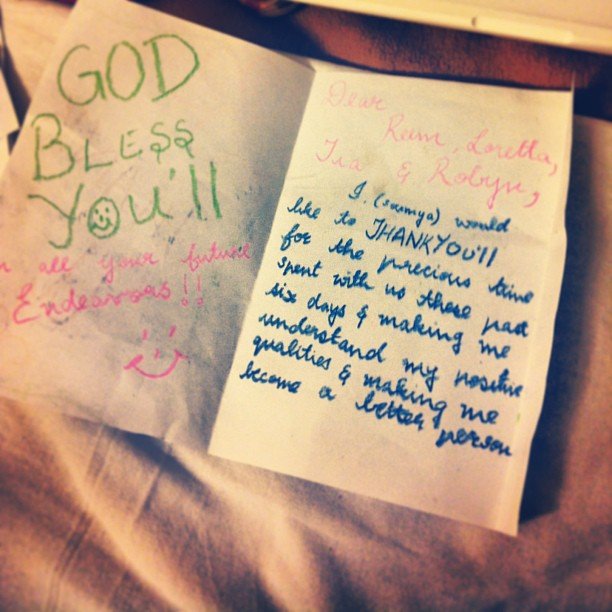 GOD
BLESS
You'll
in all your future
Endeavours!!
Dear
Reem, Loretta,
Tia & Robyn,
I (soumya) would
like to THANKYOU'll
for the precious time
spent with us these past
six days & making me
understand my positive
qualities & making me
become a better person